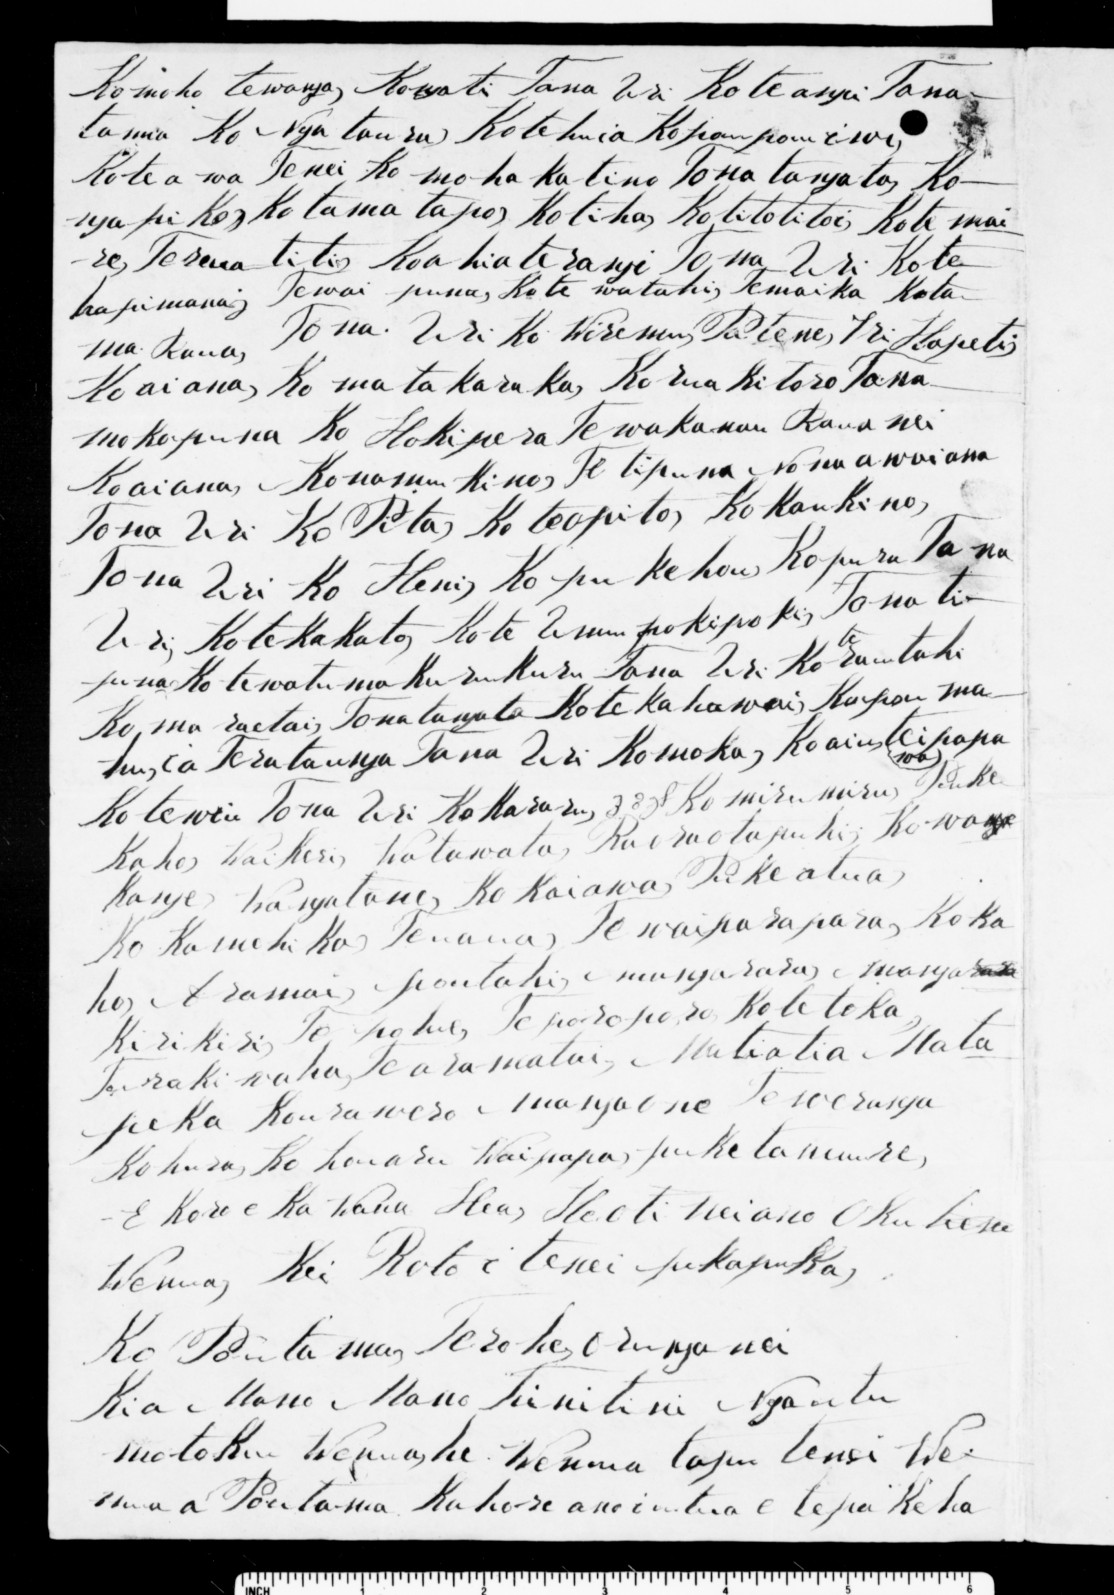 Ko moho tewanga, Kowati Tana Uri Ko te angi Tana
tamia Ko Nga taura, Kotehuia Kopoupou iwi,
Kote a wa Tenei Ko mohakatino Tona tangata, Ko
nga pi Ko, Ko tama tapo, Ko tiha, Ko titotitoi, Kote mai
re, Terewa titi, Koahiaterangi Tona Uri Kote
hapimana, Tewai puna, Kote watuhi, Temaika Kota
ma Raua, Tona Uri Ko Wiremu, Patene, Iri Hapeti,
Ko aiana, Ko matakaraka, Ko rua ki toro Tana
mokopuna Ko Hokipera Te wakanau Raua nei
Koaiana, Konamu kino, Te tipuna Nona a waiana
Tona Uri Ko Pita, Ko teopito, Ko Kaukino,
Tona Uri Ko Heni, Ko pu ke hou, Kopura Tana
Uri, Kotekakato, Kote Umu pokipoki, Tona ti
puna Ko tewatumakurukuru Tana Uri Ko te rautahi
Ko ma raetai, Tona tangata Kote Kahawai, Kopou ma
hu, ia Teratanga Tana Uri Komoka, Koaiu, teipapa
wa
Kotewiu Tona Uri Kokararu, Ko mirumiru, Puke
Kaho, Waikeri, Watawata, Raoraotapuhi, Ko wanga
Kange, Wangatane, Ko Kaiawa, Pukeatua,
Ko Kamehika, Tenana, Te waiparapara, Ko Ka
ho, Aramai, poutahi, mangarara, manga
Kirikiri, Te pohue, Teporoporo, Kotetoka,
Turaki waha, Te aramatai, Matiatia Mata
peka Kourawero Mangaone Te weranga
Kohura, Ko houaru Waipapa, puketamure,
E Koro e Ka Wana Hea, Heoti neiano Oku tiene
Wenua, Kei Roto i tenei pukapuka,
Ko Poutama, Terohe, o runga nei
Kia Mano Mano tinitini Nga utu
mo toku Wenua, he Wenua tapu tenei We
nua a Poutama Kahore ano i utua e te pakeha